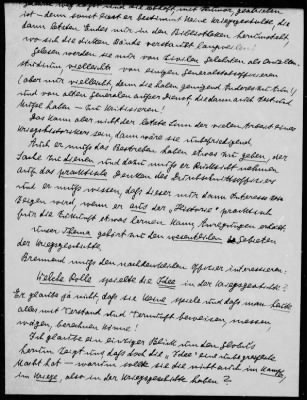 ist – denn sonst liest er bestimmt keine Kriegsgeschichte, die
dann letzten Endes nur in den Bibliotheken herumsteht,
wo sich die dicken Bände verstaubt langweilen!
Gelesen werden sie nur von Zivilen Gelehrten als Quellen-
studium vielleicht von einigen Generalstabsoffizieren
(aber nur vielleicht denn die haben genügend Anderes zu tun!)
und von alten Generalen außer Dienst die dann auch Zeit und
Muße haben – zu kritisieren!
Das kann aber nicht der letzte Sinn der vielen Arbeit eines
Kriegshistorikers sein, dann wäre sie unbefriedigend.
Auch er muß das Bestreben haben etwas zu geben, der
Sache zu dienen und dazu muß er Rücksicht nehmen
auf das praktische Denken des Durchschnittsoffiziers
und er muß wissen, daß dieser nur dann Interesse
zeigen wird, wenn er aus der „Historie" praktisch
für die Zukunft etwas lernen kann, Anregungen erhält.
Unser Thema gehört zu den wesentlichen Gebieten
der Kriegsgeschichte.
Brennend muß den nachdenkenden Offizier interessieren:
Welche Rolle spielte die Idee in der Kriegsgeschichte?
Er glaubt ja nicht, daß sie keine spiele und daß man heute
alles mit Verstand und Vernunft beweisen, messen,
wägen, berechnen könne!
Ich glaube ein einziger Blick um den Globus
herum zeigt uns, daß doch die „Idee" eine
Macht hat – warum sollte sie die nicht auch im Kampf,
im Kriege, also in der Kriegsgeschichte haben?